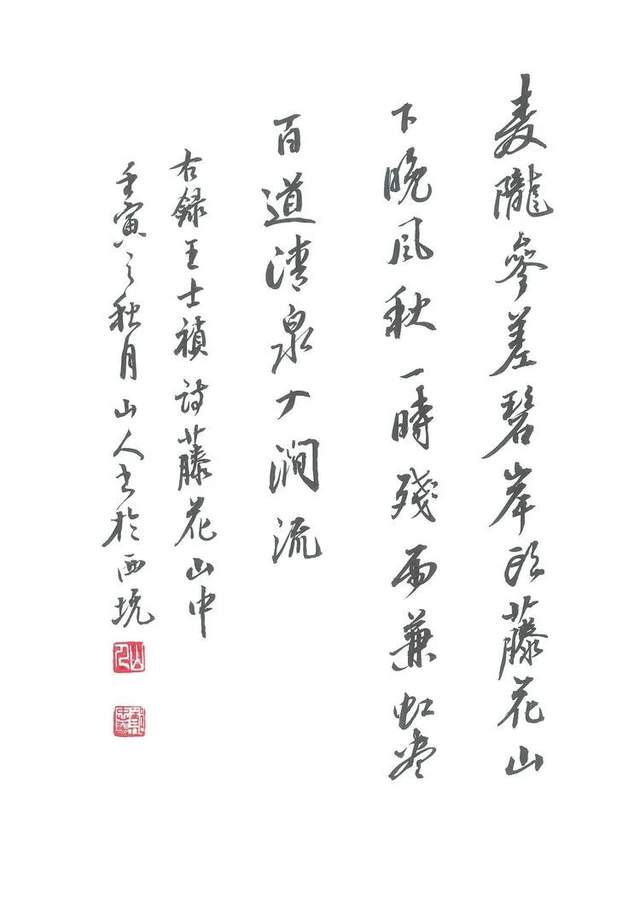 麦隴參差碧岸頭藤花山
下晚风秋一時殘雨兼虹盡
百道清泉入澗流
右録王士禎詩藤花山中
壬寅之秋月山人书於西坑
山人